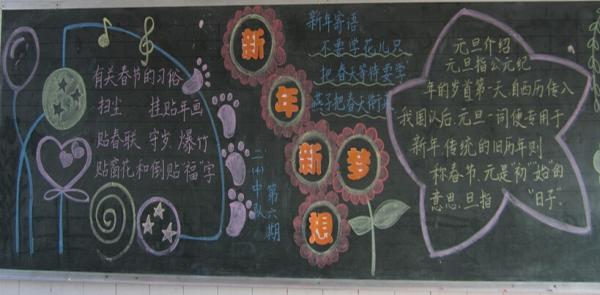 有关春节的习俗
扫尘 挂贴年画
贴春联 守岁 爆竹
贴窗花和倒贴"福"字
新年新梦想
二·(4)中队
第六期
新年寄语
不要学花儿只
把春天等待要学
燕子把春天衔来
元旦介绍
元旦指公元纪
年的岁首第一天,自西历传入
我国以后,元旦一词便专用于
新年,传统的旧历年则
称春节.元是"初""始"的
意思,旦指"日子".